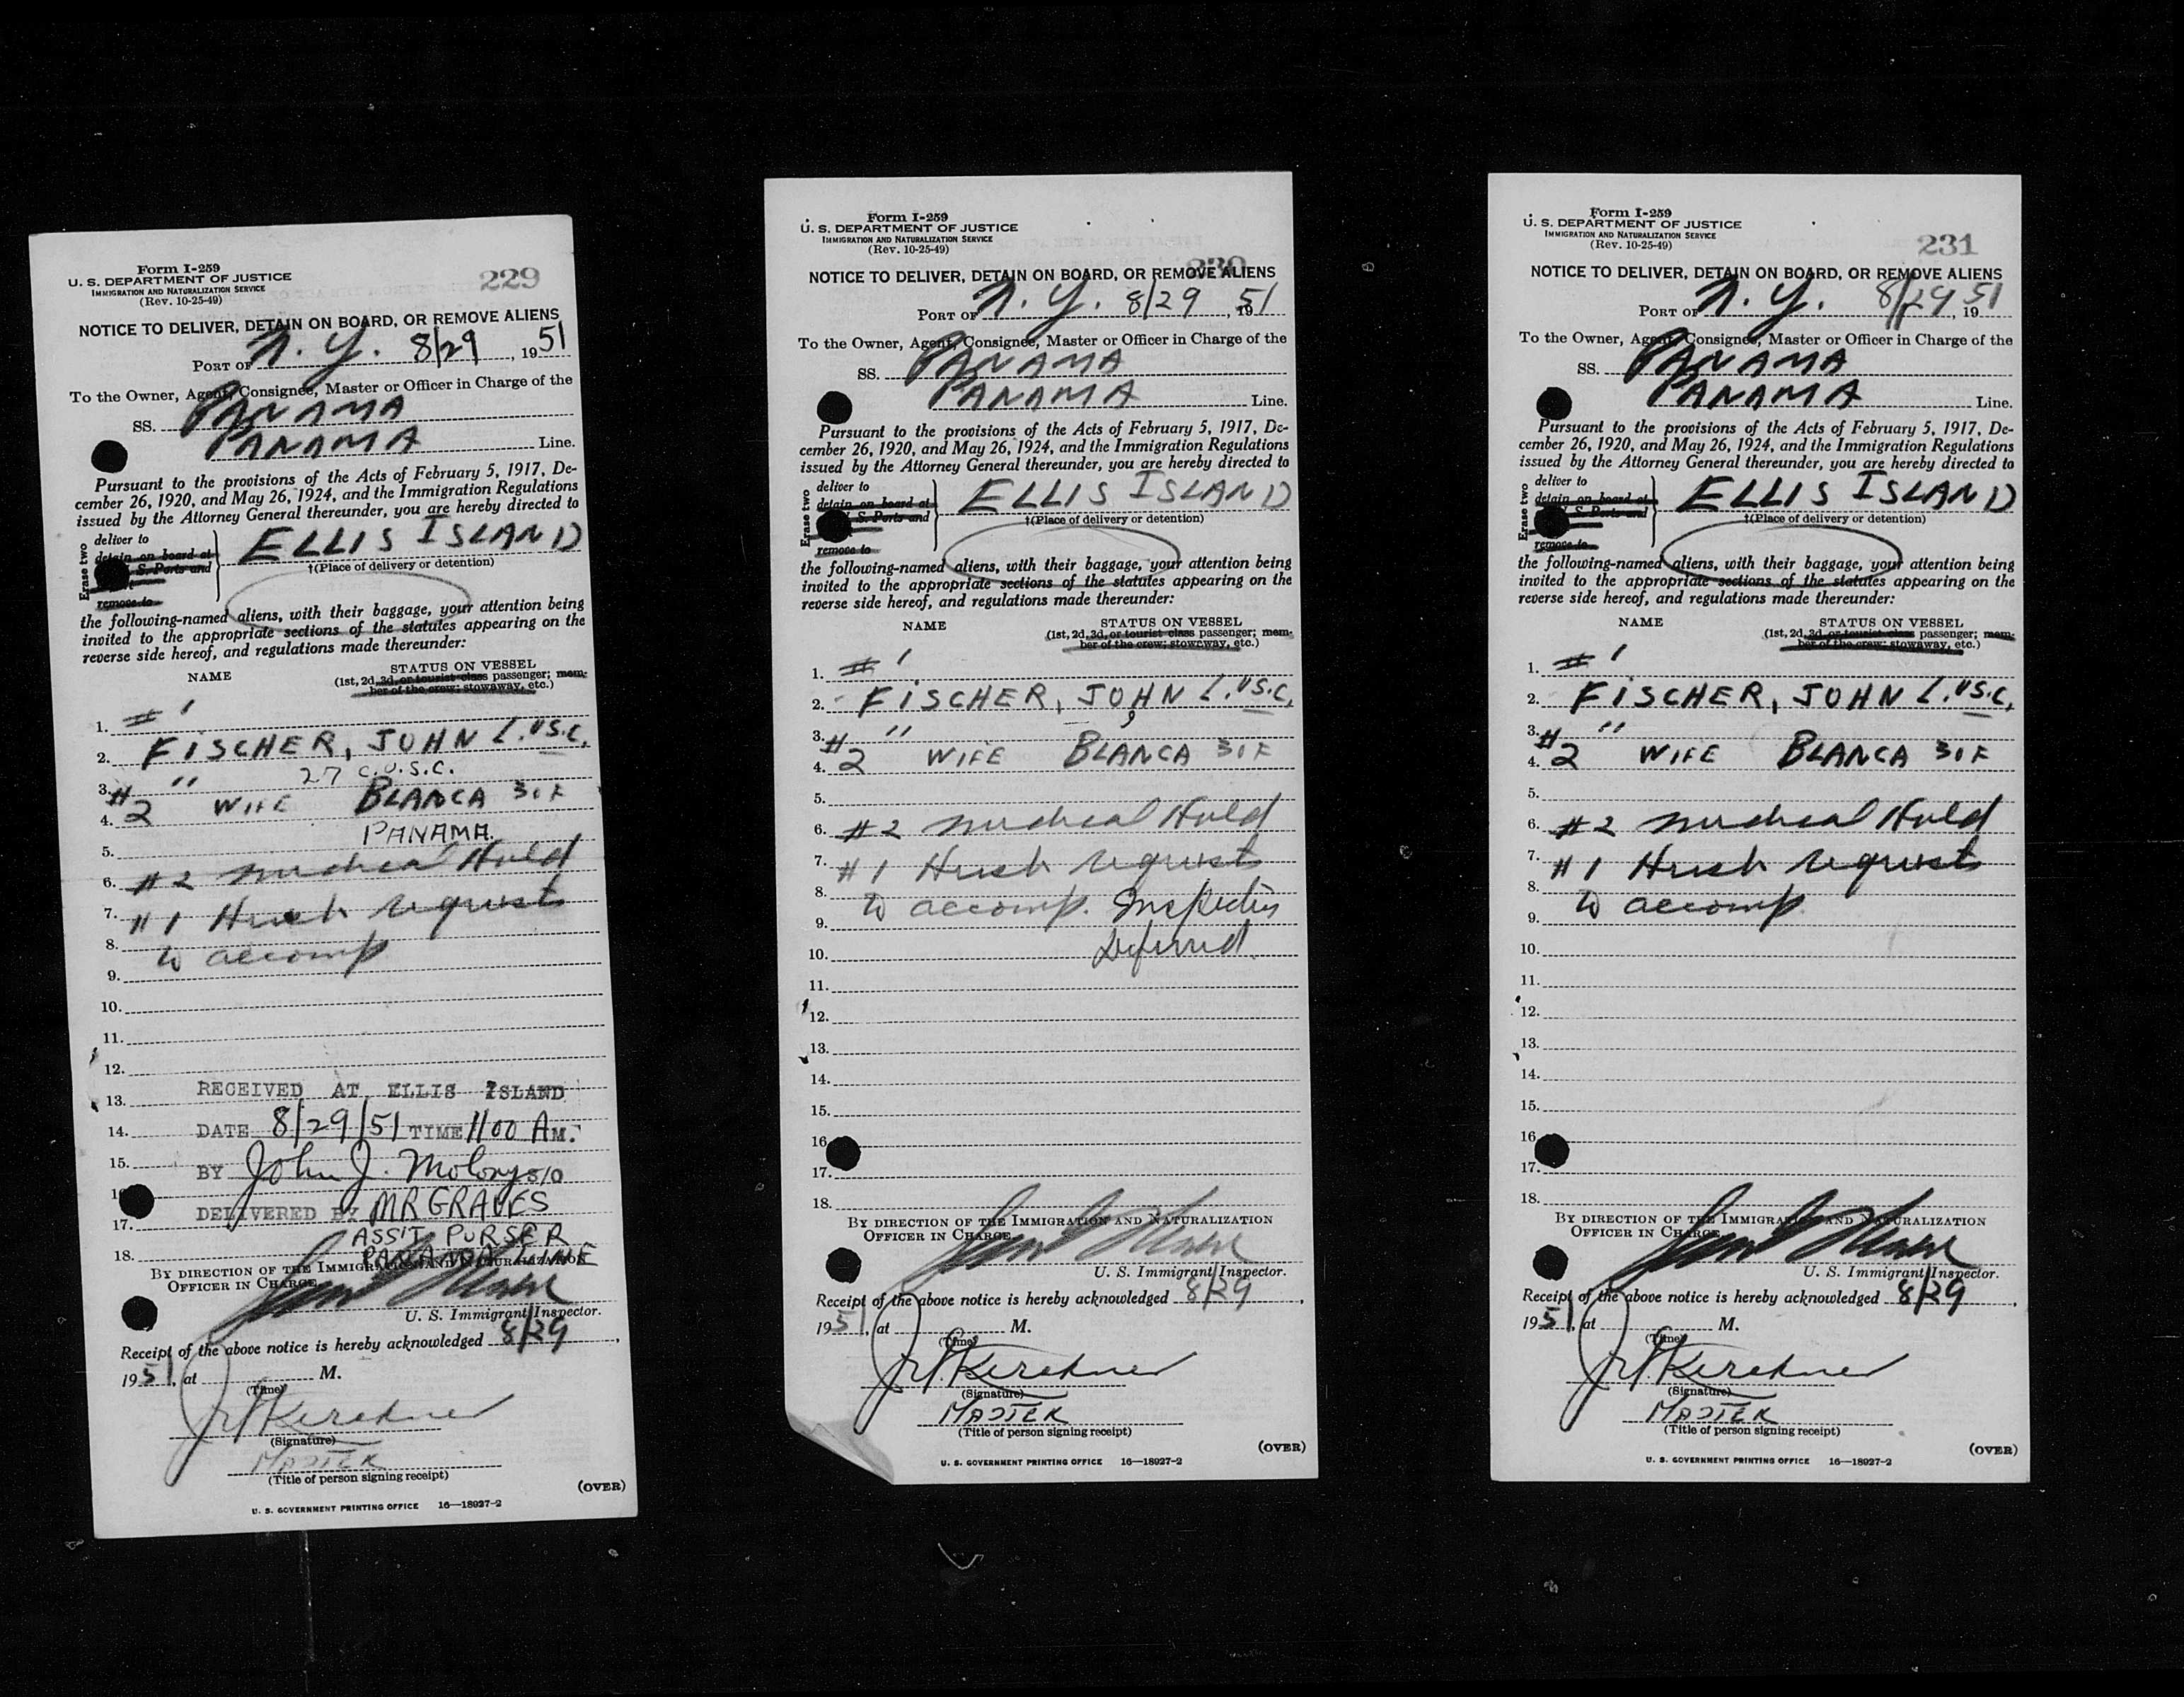 Form I-259
U. S. DEPARTMENT OF JUSTICE
IMMIGRATION AND NATURALIZATION SERVICE
(Rev. 10-25-49)
229
NOTICE TO DELIVER, DETAIN ON BOARD, OR REMOVE ALIENS
PORT OF N. Y. 8/29, 1951
To the Owner, Agent, Consignee, Master or Officer in Charge of the
SS. PANAMA
PANAMA Line.
Pursuant to the provisions of the Acts of February 5, 1917, De-
cember 26, 1920, and May 26, 1924, and the Immigration Regulations
issued by the Attorney General thereunder, you are hereby directed to
Erase two
deliver to
detain on board at
S. Ports and
remove to
ELLIS ISLAND
†(Place of delivery or detention)
the following-named aliens, with their baggage, your attention being
invited to the appropriate sections of the statutes appearing on the
reverse side hereof, and regulations made thereunder:
NAME
STATUS ON VESSEL
(1st, 2d, 3d, or tourist class passenger; mem-
ber of the crew; stowaway, etc.)
1. #1
2. FISCHER, JOHN L. USC.
27 C.U.S.C.
3. #2 " WIFE BLANCA 31F
4.
PANAMA.
5.
6. #2 Medical Hold
7. #1 Husb. requests
8. to accomp
9.
10.
11.
12.
13. RECEIVED AT ELLIS ISLAND
14. DATE 8/29/51 TIME 1100 AM.
15. BY John J. Molony S/O
16
17. DELIVERED BY MR GRAVES
ASS'T PURSER
18. PANAMA LINE
BY DIRECTION OF THE IMMIGRATION AND NATURALIZATION
OFFICER IN CHARGE
U. S. Immigrant Inspector.
Receipt of the above notice is hereby acknowledged 8/29,
1951, at M.
(Time)
Kirchner
(Signature)
MASTER
(Title of person signing receipt)
(OVER)
U. S. GOVERNMENT PRINTING OFFICE 16—18927-2
Form I-259
U. S. DEPARTMENT OF JUSTICE
IMMIGRATION AND NATURALIZATION SERVICE
(Rev. 10-25-49)
230
NOTICE TO DELIVER, DETAIN ON BOARD, OR REMOVE ALIENS
PORT OF N. Y. 8/29, 1951
To the Owner, Agent, Consignee, Master or Officer in Charge of the
SS. PANAMA
PANAMA Line.
Pursuant to the provisions of the Acts of February 5, 1917, De-
cember 26, 1920, and May 26, 1924, and the Immigration Regulations
issued by the Attorney General thereunder, you are hereby directed to
Erase two
deliver to
detain on board at
S. Ports and
remove to
ELLIS ISLAND
†(Place of delivery or detention)
the following-named aliens, with their baggage, your attention being
invited to the appropriate sections of the statutes appearing on the
reverse side hereof, and regulations made thereunder:
NAME
STATUS ON VESSEL
(1st, 2d, 3d, or tourist class passenger; mem-
ber of the crew; stowaway, etc.)
1. #1
2. FISCHER, JOHN L. USC.
3. #2 " WIFE BLANCA 31F
4.
5.
6. #2 Medical Hold
7. #1 Husb. requests
8. to accomp. Inspection
9.
10. Deferred.
11.
12.
13.
14.
15.
16
17.
18.
BY DIRECTION OF THE IMMIGRATION AND NATURALIZATION
OFFICER IN CHARGE
U. S. Immigrant Inspector.
Receipt of the above notice is hereby acknowledged 8/29,
1951, at M.
(Time)
Kirchner
(Signature)
MASTER
(Title of person signing receipt)
(OVER)
U. S. GOVERNMENT PRINTING OFFICE 16—18927-2
Form I-259
U. S. DEPARTMENT OF JUSTICE
IMMIGRATION AND NATURALIZATION SERVICE
(Rev. 10-25-49)
231
NOTICE TO DELIVER, DETAIN ON BOARD, OR REMOVE ALIENS
PORT OF N. Y. 8/29, 1951
To the Owner, Agent, Consignee, Master or Officer in Charge of the
SS. PANAMA
PANAMA Line.
Pursuant to the provisions of the Acts of February 5, 1917, De-
cember 26, 1920, and May 26, 1924, and the Immigration Regulations
issued by the Attorney General thereunder, you are hereby directed to
Erase two
deliver to
detain on board at
S. Ports and
remove to
ELLIS ISLAND
†(Place of delivery or detention)
the following-named aliens, with their baggage, your attention being
invited to the appropriate sections of the statutes appearing on the
reverse side hereof, and regulations made thereunder:
NAME
STATUS ON VESSEL
(1st, 2d, 3d, or tourist class passenger; mem-
ber of the crew; stowaway, etc.)
1. #1
2. FISCHER, JOHN L. USC.
3. #2 " WIFE BLANCA 31F
4.
5.
6. #2 Medical Hold
7. #1 Husb. requests
8. to accomp.
9.
10.
11.
12.
13.
14.
15.
16
17.
18.
BY DIRECTION OF THE IMMIGRATION AND NATURALIZATION
OFFICER IN CHARGE
U. S. Immigrant Inspector.
Receipt of the above notice is hereby acknowledged 8/29,
1951, at M.
(Time)
Kirchner
(Signature)
MASTER
(Title of person signing receipt)
(OVER)
U. S. GOVERNMENT PRINTING OFFICE 16—18927-2